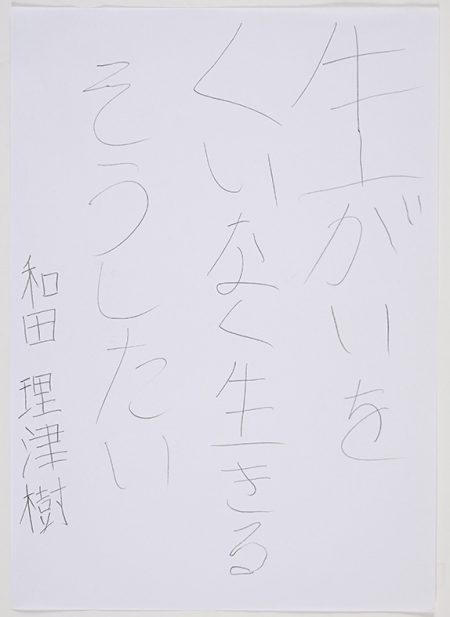 生がいを
くいなく生きる
そうしたい
和田 理津樹